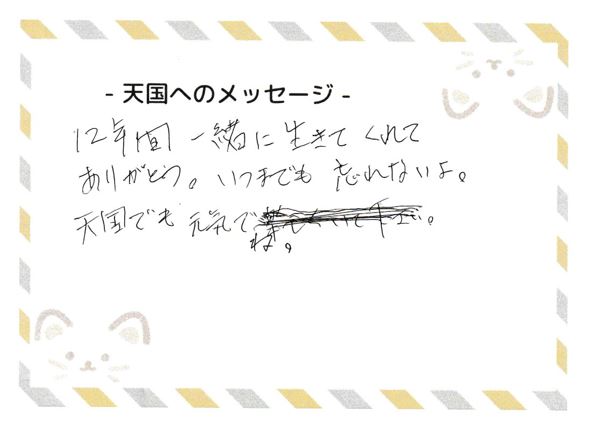 - 天国へのメッセージ -
12年間 一緒に生きてくれて
ありがとう。いつまでも 忘れないよ。
天国でも 元気で
ね。